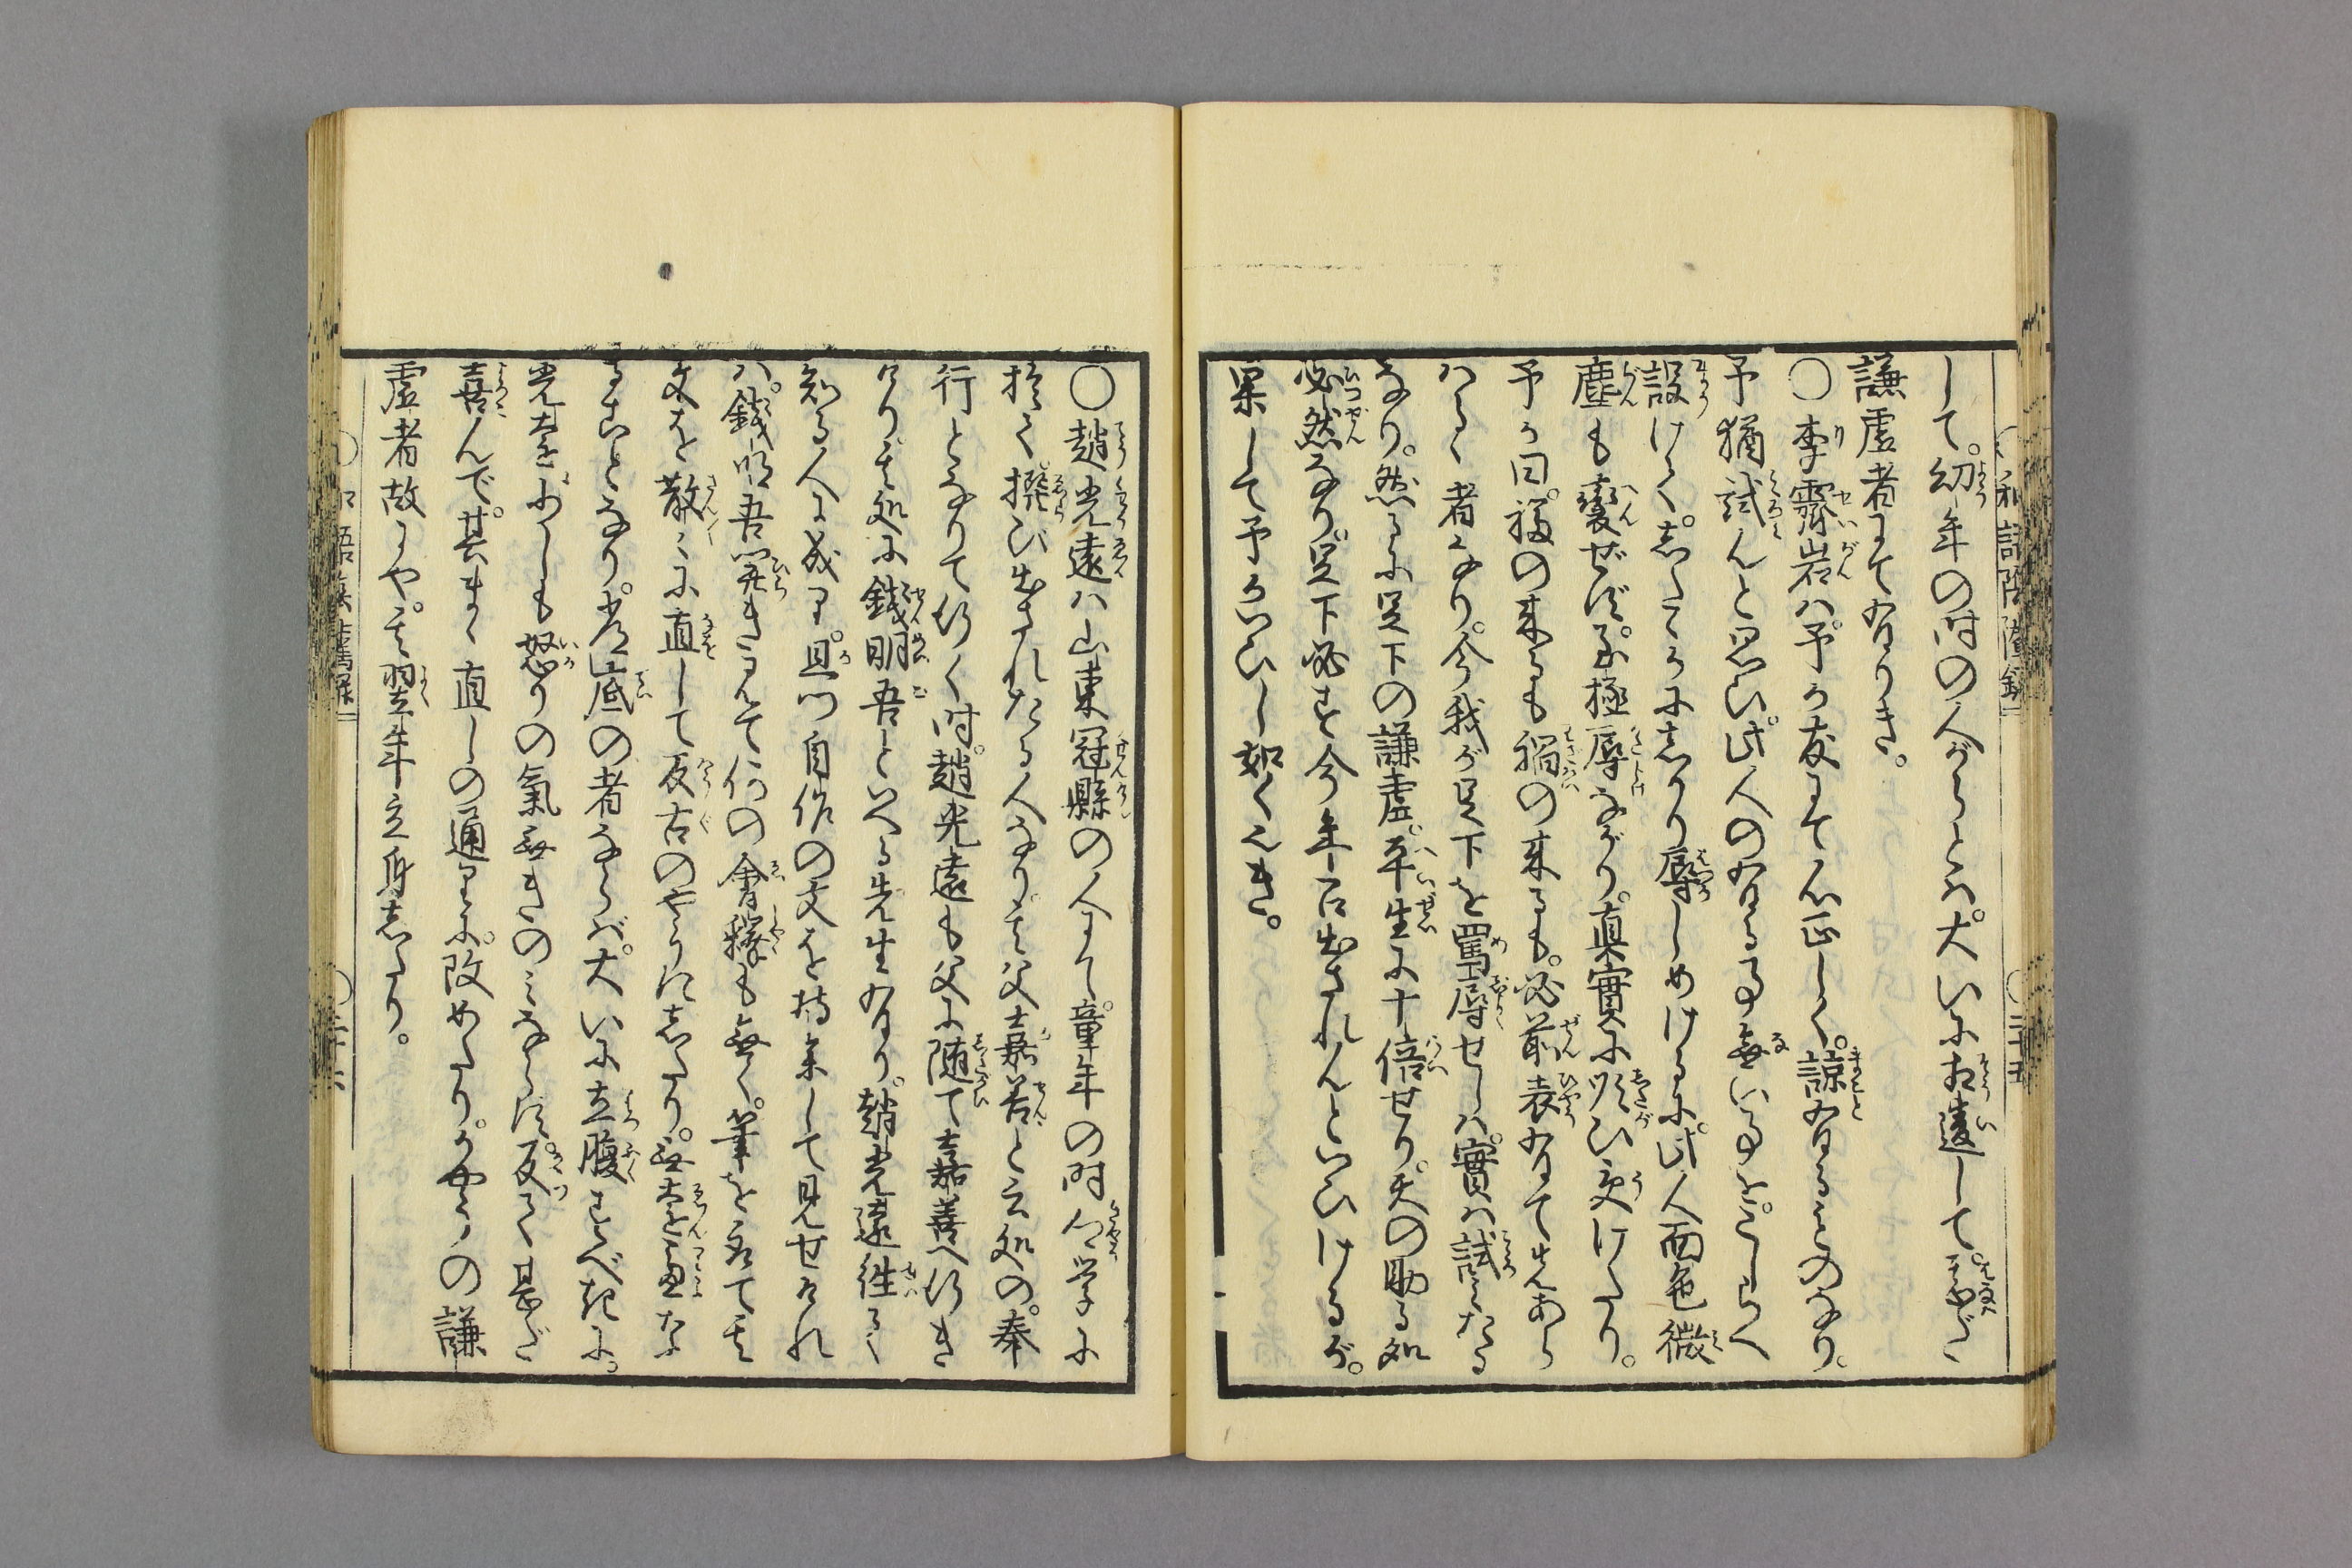 して。幼年の時の人がらとハ。大いに相違して。甚だ
謙虚者にて有りき。
〇李霽岩ハ。予が友にて心正しく。諒有るものなり。
予猶試んと思ひ。此人の有る事無い事を。こしらへ
設けて。したゝかに志かり辱しめけるに。此人面色微
塵も変ぜず。至極辱ながり。真實に順ひ受けたり。
予が曰。福の来るも禍の来るも。必前表有て先あら
ハるゝ者なり。今我が足下を罵辱せしハ。實ハ試ミたる
なり。然るに足下の謙虚。平生に十倍せり。天の助る処
必然なり。足下必ず今年召出されんといひけるが。
果して予がいひし如くぞ。
〇趙光遠ハ山東冠縣の人にて。童年の時郷学に
於て。撰び出されたる人なり。其父嘉善と云処の。奉
行となりて行く時。趙光遠も父に随て嘉善へ行き
けり。其処に銭明吾といへる先生有り。趙光遠往て
知る人に成り。且つ自作の文を持参して見せければ
ハ。銭明吾開きみて何の會釋も無く。筆を取て其
文を散〻に直して反古のやうにしたり。
ることなり。光底の者ならバ。大いに立腹すべきに。
光遠少しも怒りの氣無きのミならず。反て甚だ
喜んで。其まゝ直しの通りに。改めたり。かやうの謙
虚者故にや。其翌年立身志たり。
和語陰隲録
〇二十五